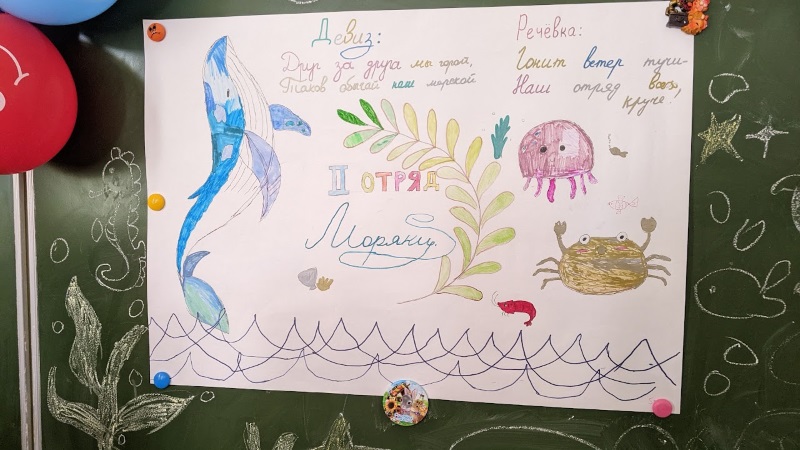 Девиз:
Друг за друга мы горой,
Таков обычай наш морской
Речёвка:
Гонит ветер тучи-
Наш отряд всех
круче!
II ОТРЯД
Моряки